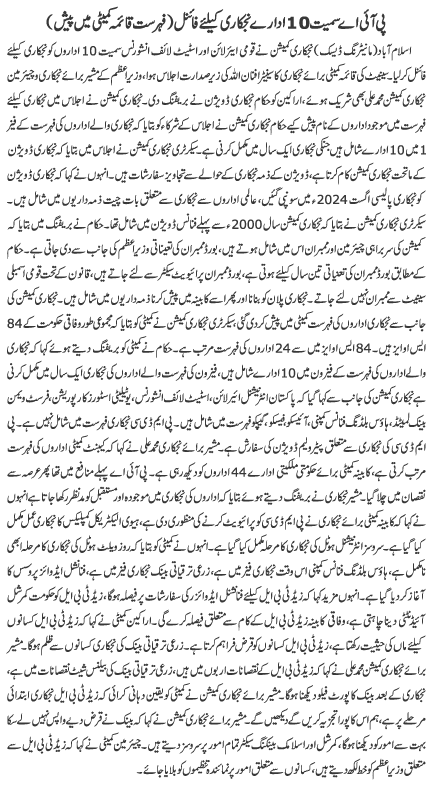 پی آئی اے سمیت 10 ادارے نجکاری کیلئے فائنل (فہرست قائمہ کمیٹی میں پیش)
اسلام آباد (مانیٹرنگ ڈیسک) نجکاری کمیشن نے قومی ایئر لائن اور اسٹیٹ لائف انشورنس سمیت 10 اداروں کو نجکاری کیلئے
فائنل کر لیا۔ سینیٹ کی قائمہ کمیٹی برائے نجکاری کا سینیٹر افنان اللہ کی زیر صدارت اجلاس ہوا، وزیر اعظم کے مشیر برائے نجکاری و چیئرمین
نجکاری کمیشن محمد علی بھی شریک ہوئے، اراکین کو حکام نجکاری ڈویژن نے بریفنگ دی۔ حکام نجکاری کمیشن نے اجلاس میں نجکاری
فہرست میں موجود اداروں کے نام پیش کیے حکام نجکاری کمیشن نے اجلاس کے شرکاء کو بتایا کہ نجکاری والے اداروں کی فہرست کے فیز
1 میں 10 ادارے شامل ہیں جنکی نجکاری ایک سال میں مکمل کرنی ہے۔ سیکرٹری نجکاری کمیشن نے اجلاس میں بتایا کہ نجکاری ڈویژن
کے ماتحت نجکاری کمیشن کام کرتا ہے، ڈویژن کے ذمہ نجکاری کے حوالے سے تجاویز سفارشات ہیں۔ انہوں نے کہا کہ نجکاری ڈویژن
کو نجکاری پالیسی اگست 2024ء میں سونپی گئیں، عالمی اداروں سے نجکاری سے متعلق بات چیت ذمہ داریوں میں شامل ہیں۔
سیکرٹری نجکاری کمیشن نے بتایا کہ نجکاری کمیشن سال 2000ء سے پہلے فنانس ڈویژن میں شامل تھا۔ حکام نے بریفنگ میں بتایا کہ
کمیشن کی سربراہی چیئرمین اور ممبران اس میں شامل ہیں، بورڈ ممبران کی تعیناتی وزیر اعظم کی جانب سے دی جاتی ہے۔ حکام
کے مطابق بورڈ ممبران کی تعیناتی تین سال کیلئے ہوتی ہے، بورڈ ممبران پرائیویٹ سیکٹر سے لئے جاتے ہیں، قانون کے تحت قومی اسمبلی
سینیٹ سے ممبران نہیں لئے جاتے۔ نجکاری پلان کو بنانا اور پھر اسے کابینہ میں پیش کرنا ذمہ داریوں میں شامل ہیں۔ نجکاری کمیشن کی
جانب سے نجکاری اداروں کی فہرست کمیٹی میں پیش کر دی گئی، سیکرٹری نجکاری کمیشن نے کمیٹی کو بتایا کہ مجموعی طور وفاقی حکومت کے 84
ایس او ایز ہیں۔ 84 ایس او ایز میں سے 24 اداروں کی فہرست مرتب ہے۔ حکام نے کمیٹی کو بریفنگ دیتے ہوئے کہا کہ نجکاری
والے اداروں کی فہرست کے فیز ون میں 10 ادارے شامل ہیں، فیز ون کی فہرست والے اداروں کی نجکاری ایک سال میں مکمل کرنی
ہے نجکاری کمیشن کی جانب سے کہا گیا کہ پاکستان انٹرنیشنل ایئر لائن، اسٹیٹ لائف انشورنس، یوٹیلیٹی اسٹورز کارپوریشن، فرسٹ ویمن
بینک لمیٹیڈ، ہاؤس بلڈنگ فنانس کمپنی، آئیسکو، فیسکو، گیپکو فہرست میں شامل ہیں۔ پی ایم ڈی سی نجکاری فہرست میں شامل نہیں ہے۔ پی
ایم ڈی سی کی نجکاری سے متعلق پیٹرولیم ڈویژن کی سفارش ہے۔ مشیر برائے نجکاری محمد علی نے کہا کہ کیبنٹ کمیٹی اداروں کی فہرست
مرتب کرتی ہے، کابینہ کمیٹی برائے حکومتی ملکیتی ادارے 44 اداروں کو دیکھ رہی ہے۔ پی آئی اے پہلے منافع میں تھا پھر عرصہ سے
نقصان میں چلا گیا۔ مشیر نجکاری نے بریفنگ دیتے ہوئے کہا کہ اداروں کی نجکاری میں موجودہ اور مستقبل کو مدنظر رکھا جاتا ہے انہوں
نے کہا کہ کابینہ کمیٹی برائے نجکاری نے پی ایم ڈی سی کو پرائیویٹ کرنے کی منظوری دی ہے، ہیوی الیکٹریکل کمپلیکس کا نجکاری عمل مکمل
کیا گیا ہے۔ سروسز انٹرنیشنل ہوٹل کی نجکاری کا مرحلہ مکمل کیا گیا ہے۔ انہوں نے کمیٹی کو بتایا کہ روز ویلٹ ہوٹل کی نجکاری کا مرحلہ ابھی
نامکمل ہے، ہاؤس بلڈنگ فنانس کمپنی اس وقت نجکاری فیز میں ہے، زرعی ترقیاتی بینک نجکاری فیز میں ہے، فنانشل ایڈوائزر پروسس کا
آغاز کر دیا گیا ہے۔ انہوں نے مزید کہا کہ زیڈ ٹی بی ایل کیلئے فنانشل ایڈوائزر کی سفارشات پر فیصلہ ہوگا، زیڈ ٹی بی ایل کو حکومت کمرشل
آئیڈنٹٹی دینا چاہتی ہے، وفاقی کابینہ زیڈ ٹی بی ایل کے کام سے متعلق فیصلہ کرے گی۔ اراکین کمیٹی نے کہا کہ زیڈ ٹی بی ایل کسانوں
کیلئے ماں کی حیثیت رکھتا ہے، زیڈ ٹی بی ایل کسانوں کو قرض فراہم کرتا ہے۔ زرعی ترقیاتی بینک کی نجکاری کسانوں سے ظلم ہوگا۔ مشیر
برائے نجکاری کمیشن محمد علی نے کہا کہ زیڈ ٹی بی ایل کے نقصانات اربوں میں ہیں، زرعی ترقیاتی بینک کی بیلنس شیٹ نقصانات میں ہے،
جسکے بعد بینک کا پورٹ فیلو دیکھنا ہوگا۔ مشیر برائے نجکاری کمیشن نے کمیٹی کو یقین دہانی کرائی کہ زیڈ ٹی بی ایل نجکاری ابتدائی
مرحلے پر ہے، ہم اس کا پورا تجزیہ کریں گے دیکھیں گے۔ مشیر برائے نجکاری کمیشن نے کہا کہ بینک نے قرض دیے واپس نہیں لے سکا
بہت سے امور کو دیکھنا ہوگا، کمرشل اور اسلامک بینکنگ سیکٹر تمام امور پر سروسز دیتے ہیں۔ چیئرمین کمیٹی نے کہا کہ زیڈ ٹی بی ایل سے
متعلق وزیر اعظم کو خط لکھ دیتے ہیں، کسانوں سے متعلق امور پر نمائندہ تنظیموں کو بلایا جائے۔